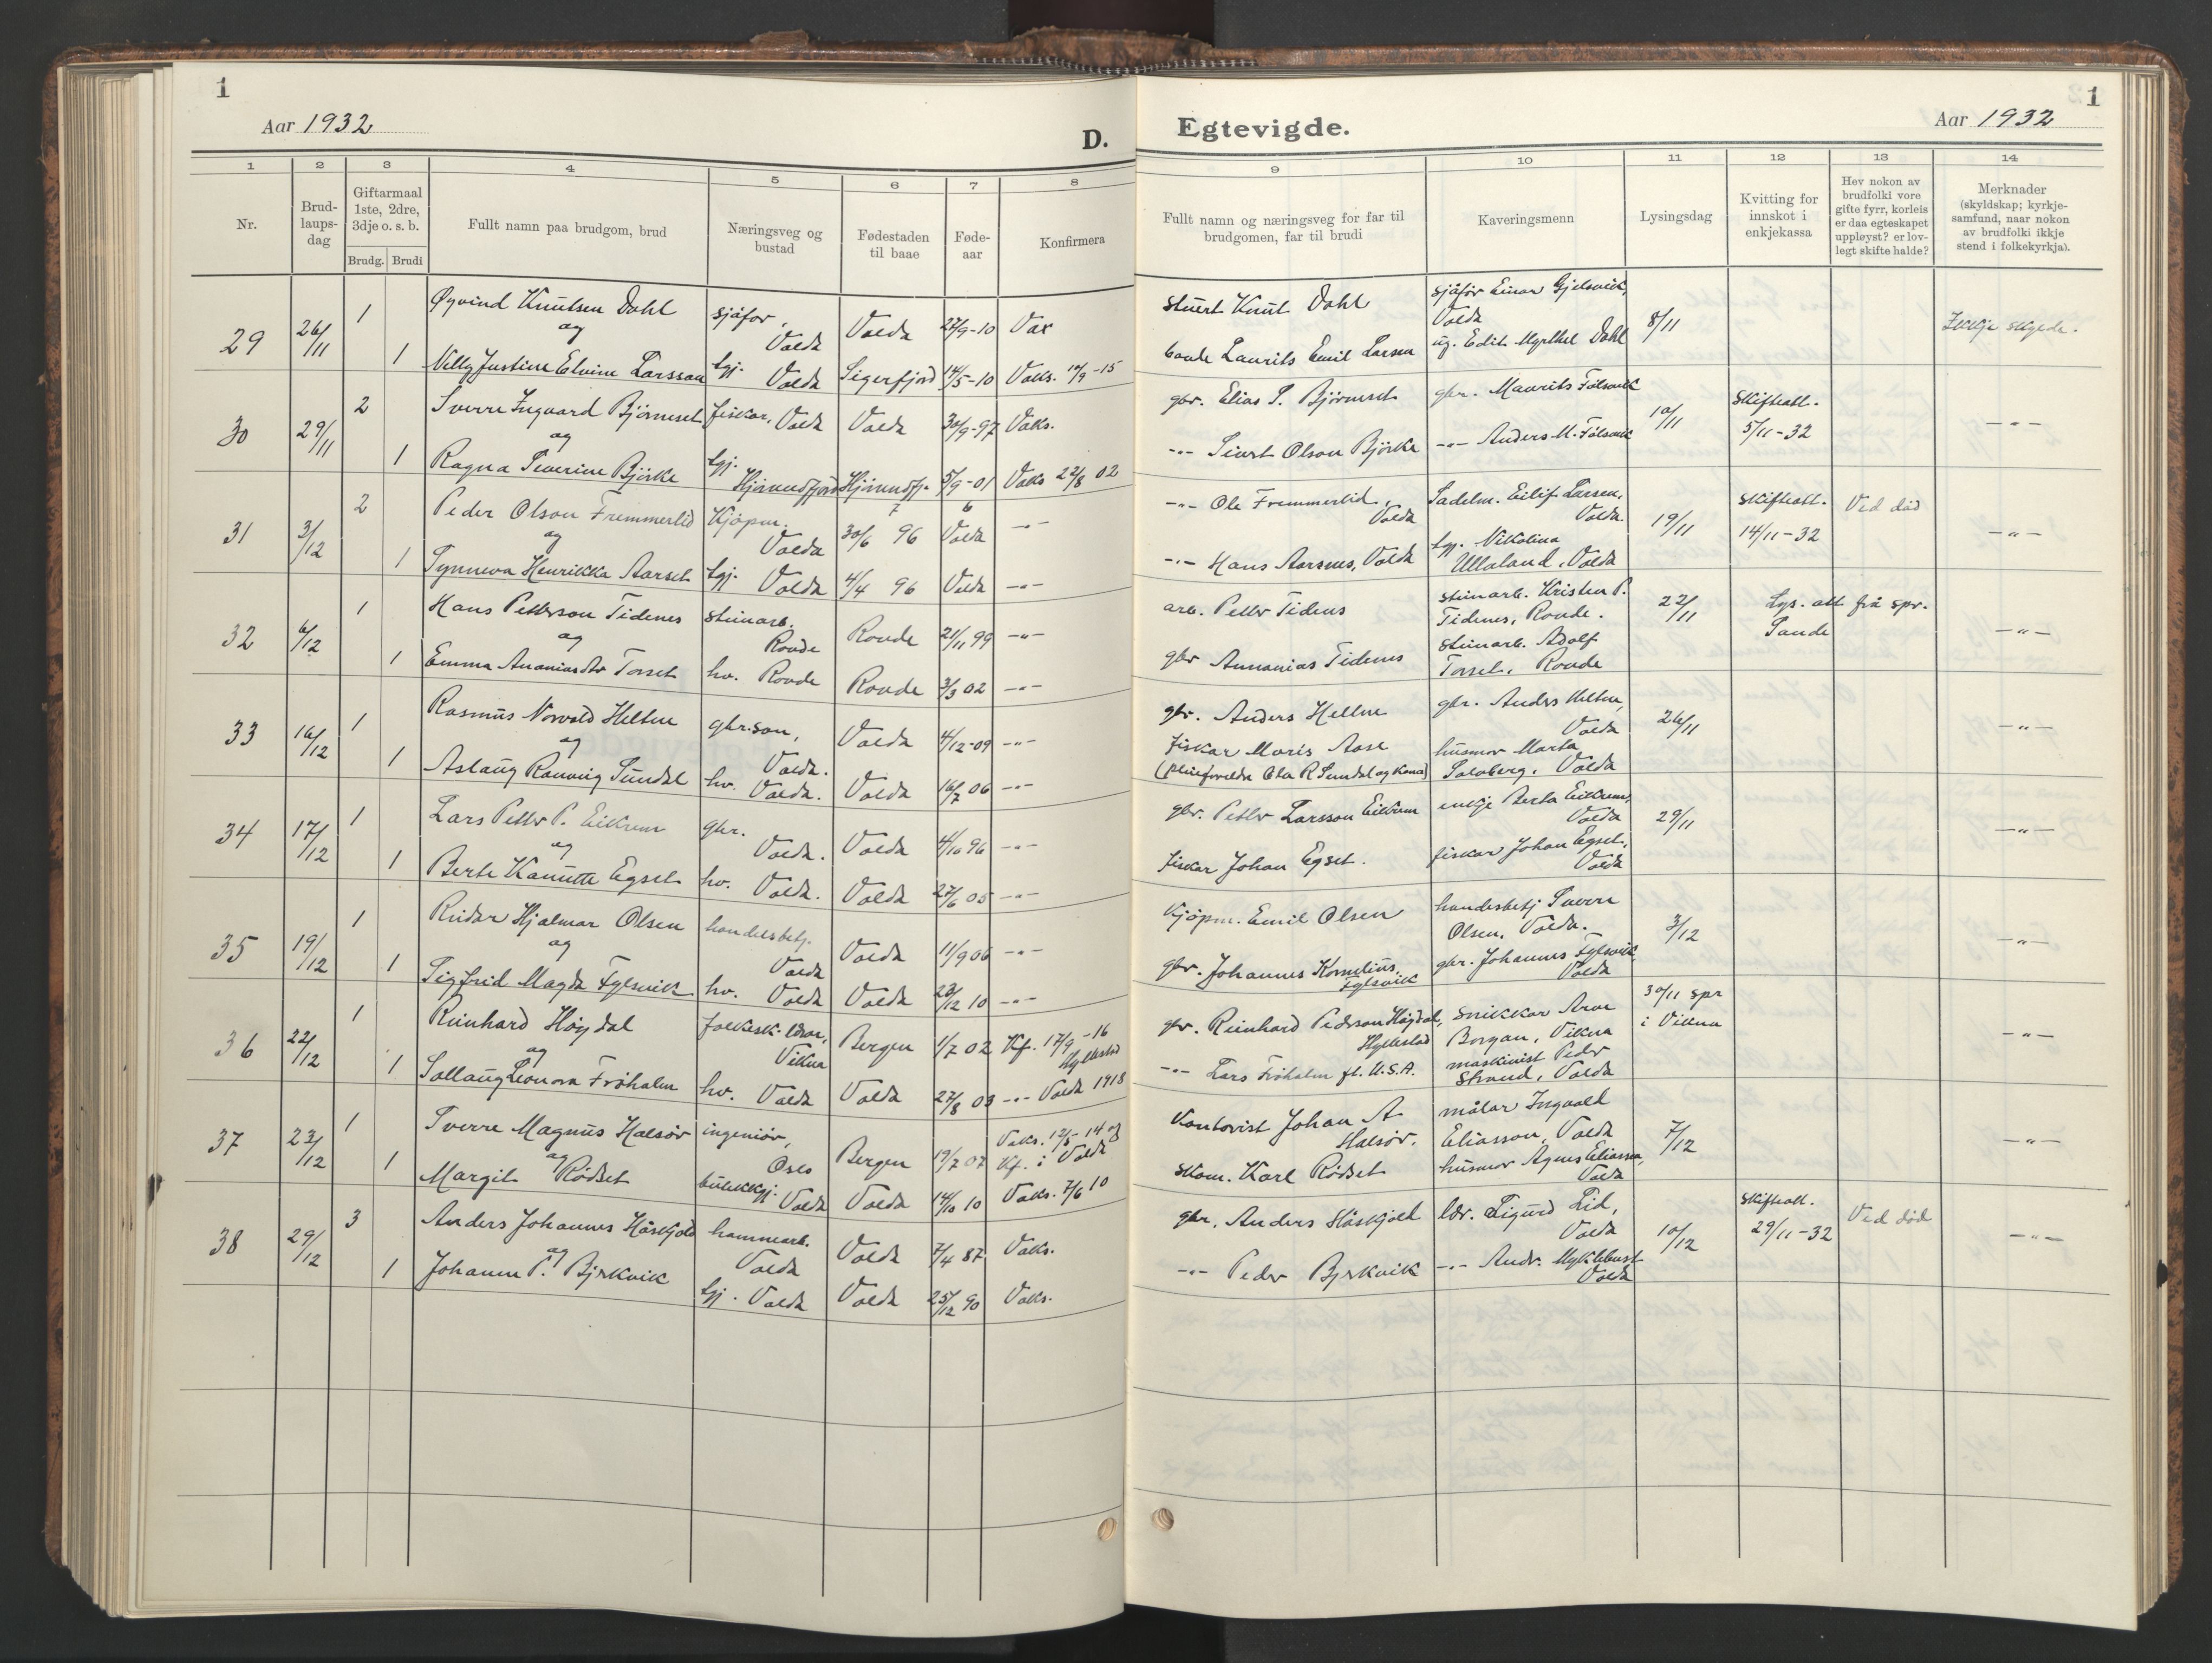 1
Aar 1932
D.
1 2 3 4 5 6 7 8
Nr.
Brud-
laups-
dag
Giftarmaal
1ste, 2dre,
3dje o. s. b.
Brudg. Brudi
Fullt namn paa brudgom, brud
Næringsveg og
bustad
Fødestaden
til baae
Føde-
aar
Konfirmera
29 26/11 1 Øyvind Knutsen Dahl sjåfør, Volda Volda 27/9-10 Vax
og
1 Nelly Justine Elvine Larsson tgj. Volda Sigerfjord 14/5-10 Vaks. 12/9-15
30 29/11 2 Sverre Ingvard Bjørneset fiskar, Volda Volda 30/9-97 Vaks.
og
1 Ragna Severine Bjørke tgj. Hjørundfjord Hjørundfj. 5/9-01 Vaks 22/8 02
7 6
31 3/12 2 Peder Olson Fremmerlid Kjøpm. Volda 30/6 96 Volda -"-
og
1 Synneva Henrikka Aarset tgj. Volda 4/4 96 Volda -"-
32 6/12 1 Hans Petterson Tidenes steinarb. Rovde Rovde 21/11 99 -"-
og
1 Emma Ananiasdtr Torset hv. Rovde Rovde 3/3 02 -"-
33 16/12 1 Rasmus Norvald Heltne gbr.son, Volda. Volda 4/12-09 -"-
og
1 Aslaug Ranveig Sundal hv. Volda. Volda 16/7 06 -"-
34 17/12 1 Lars Petter P. Eikrem gbr. Volda. Volda 4/10 96 -"-
og
1 Berte Kanutte Egset hv. Volda. Volda 27/6 05 -"-
35 19/12 1 Reidar Hjalmar Olsen handelsbetj. Volda Volda 11/9 06 -"-
og
1 Sigfrid Magda Fylsvik hv. Volda Volda 23/12 10 -"-
36 22/12 1 Reinhard Høydal folkesk.lærar, Vikna Bergen 1/7 02 Kf. 17/9-16 Hyllestad
og
1 Sollaug Leonora Frøholm hv. Volda Volda 27/8 03 -"- Volda 1918
37 23/12 1 Sverre Magnus Halsør ingeniør, Oslo Bergen 19/7 07 Vaks. 12/5-14 og Kf. i Volda
og
1 Margit Rødset butikkgj. Volda Volda 14/10 10 Vaks. 7/6 10
38 29/12 3 Anders Johannes Håskjold hammarb. Volda Volda 7/4 87 Vaks.
og
1 Johanne P. Bjrkvik tgj. Volda Volda 25/12 90 Vaks.
1
Egtevigde.
Aar 1932
9 10 11 12 13 14
Fullt namn og næringsveg for far til
brudgomen, far til brudi
Kaveringsmenn
Lysingsdag
Kvitting for
innskot i
enkjekassa
Hev nokon av
brudfolki vore
gifte fyrr, korleis
er daa egteskapet
uppløyst? er lov-
legt skifte halde?
Merknader
(skyldskap; kyrkje-
samfund, naar nokon
av brudfolki ikkje
stend i folkekyrkja).
stuert Knut Dahl sjåfør Einar Gjelsvik, Volda 8/11 Ikkje skylde.
bonde Laurits Emil Larsen ug. Edit Myrthel Dahl
gbr. Elias S. Bjørneset gbr. Maurits Følsvik 10/11 Skifteatt. 5/11-32 -"-
-"- Sivert Olson Bjørke -"- Anders M. Følsvik
-"- Ole Fremmerlid, Volda Sadelm. Eilif Larsen, Volda. 19/11 Skifteatt. 14/11-32 Ved død -"-
-"- Hans Aarsnes, Volda tgj. Nikolina Ullaland, Volda
arb. Petter Tidens steinarb. Kristen P. Tidenes, Rovde. 22/11 Lys. att frå spr. Sande -"-
gbr Annanias Tidenes steinarb. Adolf Torset, Rovde
gbr. Anders Heltne gbr. Anders Heltne, Volda 26/11 -"-
fiskar Moris Aase husmor Marta
(pleieforeldre Ola R Sundal og kona) Solvberg, Volda
gbr. Petter Larsson Eikrem enkje Berta Eikrem, Volda 29/11 -"-
fiskar Johan Egset. fiskar Johan Egset, Volda
Kjøpm. Emil Olsen handesbetj Sverre Olsen, Volda. 3/12 -"-
gbr. Johannes Kornelius Fylsvik gbr. Johannes Fylsvik Volda
gbr. Reinhard Pedersson Høydal, Hyllestad snikkar Arne Borgan, Vikna 30/11 spr i Vikna -"-
-"- Lars Frøholm fl. U.S.A. maskinist Peder Strand, Volda
Kontorist Johan A Halsør. målar Ingvald Eliasson, Volda 7/12 -"-
skom. Karl Rødset husmor Agnes Eliassen, Volda
gbr. Anders Håskjold lær. Sigurd Lid, Volda 10/12 Skifteatt. 29/11-32 Ved død -"-
-"- Peder Bjrkvik -"- Andr. Myklebust Volda